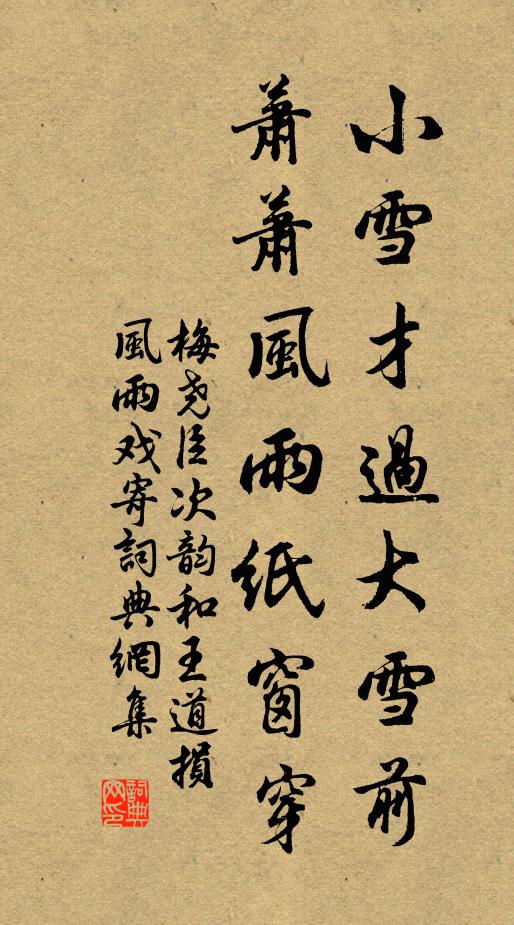 小雪才過大雪前
蕭蕭風雨紙窗穿
梅尧臣次韵和王道損
風雨戏寄詞典網集
詞典网印